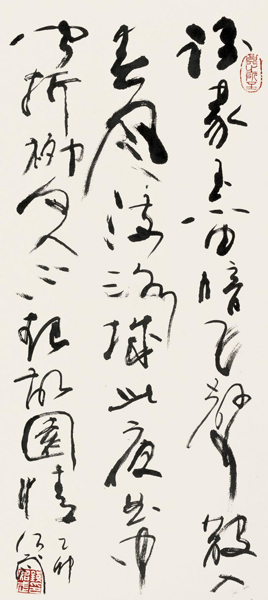 誰家玉笛暗飛聲散入
春風滿洛城此夜曲中
聞折柳何人不起故園情